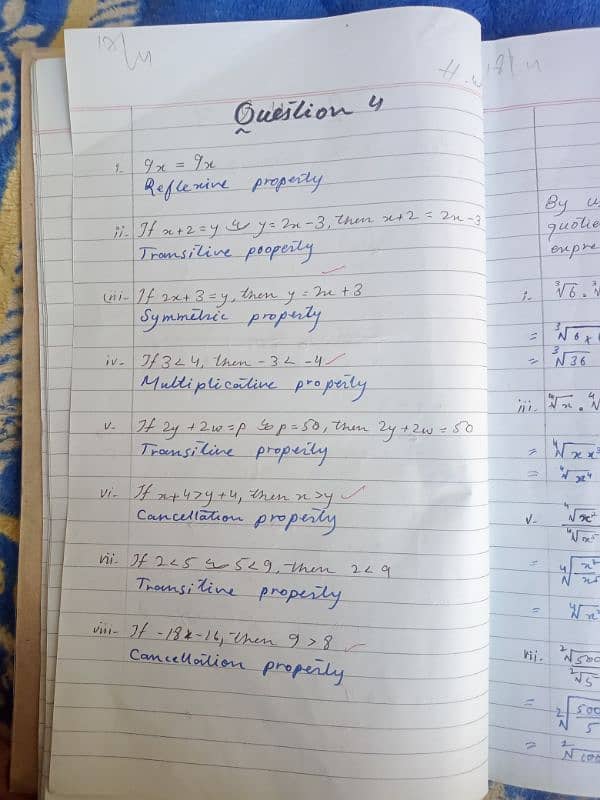 18/4
H.w 18/4
Question 4
i. 9x = 9x
Reflexive property
ii. If x+2=y & y=2x-3, then x+2 = 2x-3
Transitive pooperty
iii. If 2x+3=y, then y=2x+3
Symmetric property
iv. If 3<4, then -3< -4
Multiplicative property
v. If 2y+2w=p & p=50, then 2y+2w=50
Transitive property
vi. If x+4>y+4, then x>y
Cancellation property
vii. If 2<5 & 5<9, then 2<9
Transitive property
viii. If -18<-16, then 9>8
Cancellation property
By
quotie
expre
i. ∛6 ·
=
= ∛36
iii. ∜x ·
=
= ∜x⁴
v.
=
=
vii. ²√500
²√5
= ²√500
5
= ²√100